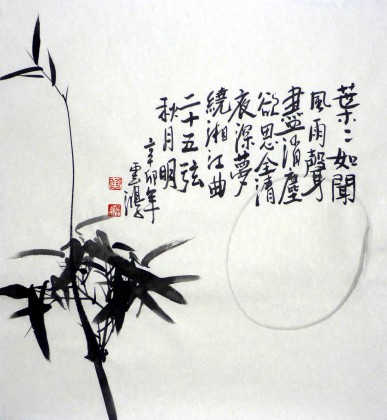 葉〻如聞
風雨聲
盡消塵
欲思全清
夜深夢
繞湘江曲
二十五弦
秋月明
辛卯年
雲